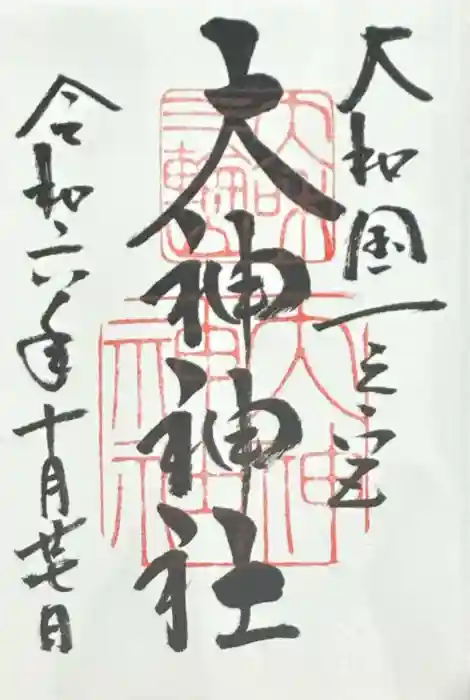 大和国一之宮
大神神社
令和六年十月廿七日
大和
三輪
大神
神社